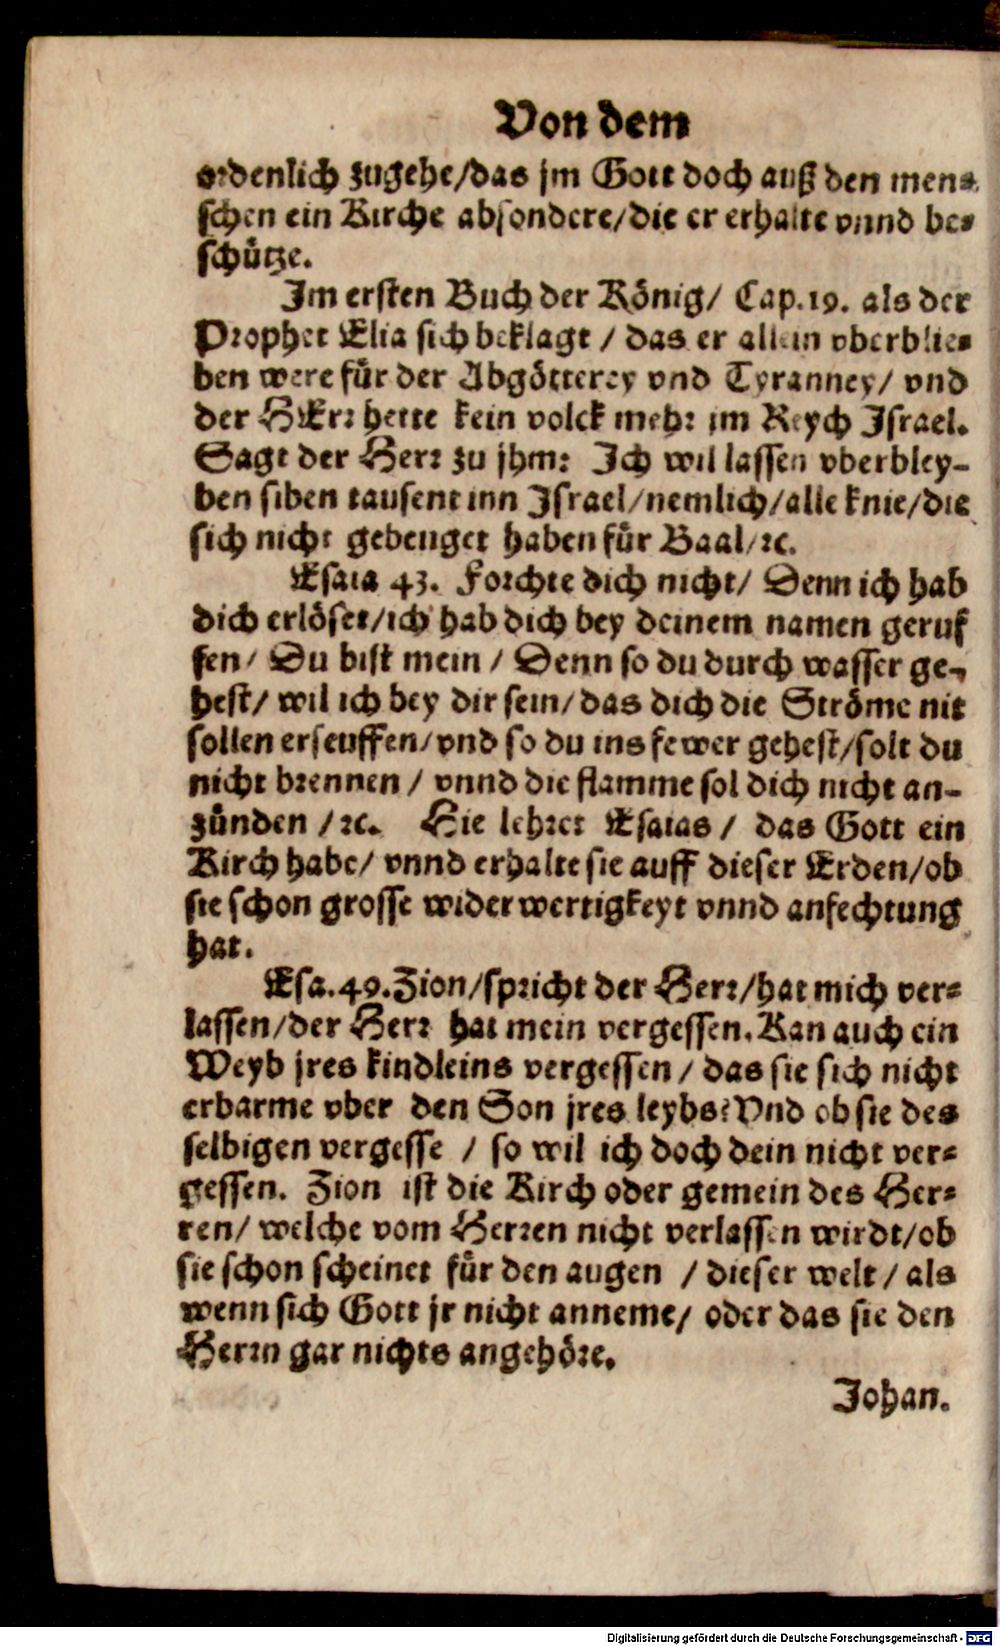 Von dem
ordenlich zugehe/das jm Gott doch auß den men⸗
schen ein Kirche absondere/die er erhalte vnnd be⸗
schütze.
Im ersten Buch der König/ Cap.19. als der
Prophet Elia sich beklagt / das er allein vberblie⸗
ben were für der Abgötterey vnd Tyranney/ vnd
der HErr hette kein volck mehr im Reych Israel.
Sagt der Herr zu jhm: Ich wil lassen vberbley-
ben siben tausent inn Israel/nemlich/alle knie/die
sich nicht gebeuget haben für Baal/ꝛc.
Esaia 43. Forchte dich nicht/ Denn ich hab
dich erlöset/ich hab dich bey deinem namen geruf
fen/ Du bist mein / Denn so du durch wasser ge-
hest/ wil ich bey dir sein/das dich die Ströme nit
sollen erseuffen/vnd so du ins fewer gehest/solt du
nicht brennen / vnnd die flamme sol dich nicht an-
zünden /ꝛc. Hie lehret Esaias / das Gott ein
Kirch habe/ vnnd erhalte sie auff dieser Erden/ob
sie schon grosse widerwertigkeyt vnnd anfechtung
hat.
Esa.49.Zion/spricht der Herr/hat mich ver⸗
lassen/der Herr hat mein vergessen. Kan auch ein
Weyb jres kindleins vergessen / das sie sich nicht
erbarme vber den Son jres leybs? Vnd ob sie des
selbigen vergesse / so wil ich doch dein nicht ver⸗
gessen. Zion ist die Kirch oder gemein des Her⸗
ren/ welche vom Herren nicht verlassen wirdt/ob
sie schon scheinet für den augen / dieser welt / als
wenn sich Gott jr nicht anneme/ oder das sie den
Herrn gar nichts angehöre.
Johan.
Digitalisierung gefördert durch die Deutsche Forschungsgemeinschaft - DFG